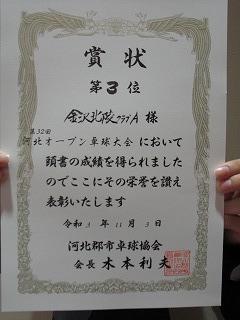 賞状
第3位
金沢北陵クラブA 様
第32回
河北オープン卓球大会 において
頭書の成績を得られました
のでここにその栄誉を讃え
表彰いたします
令和 3 年 11 月 3 日
河北郡市卓球協会
会長 木本利夫